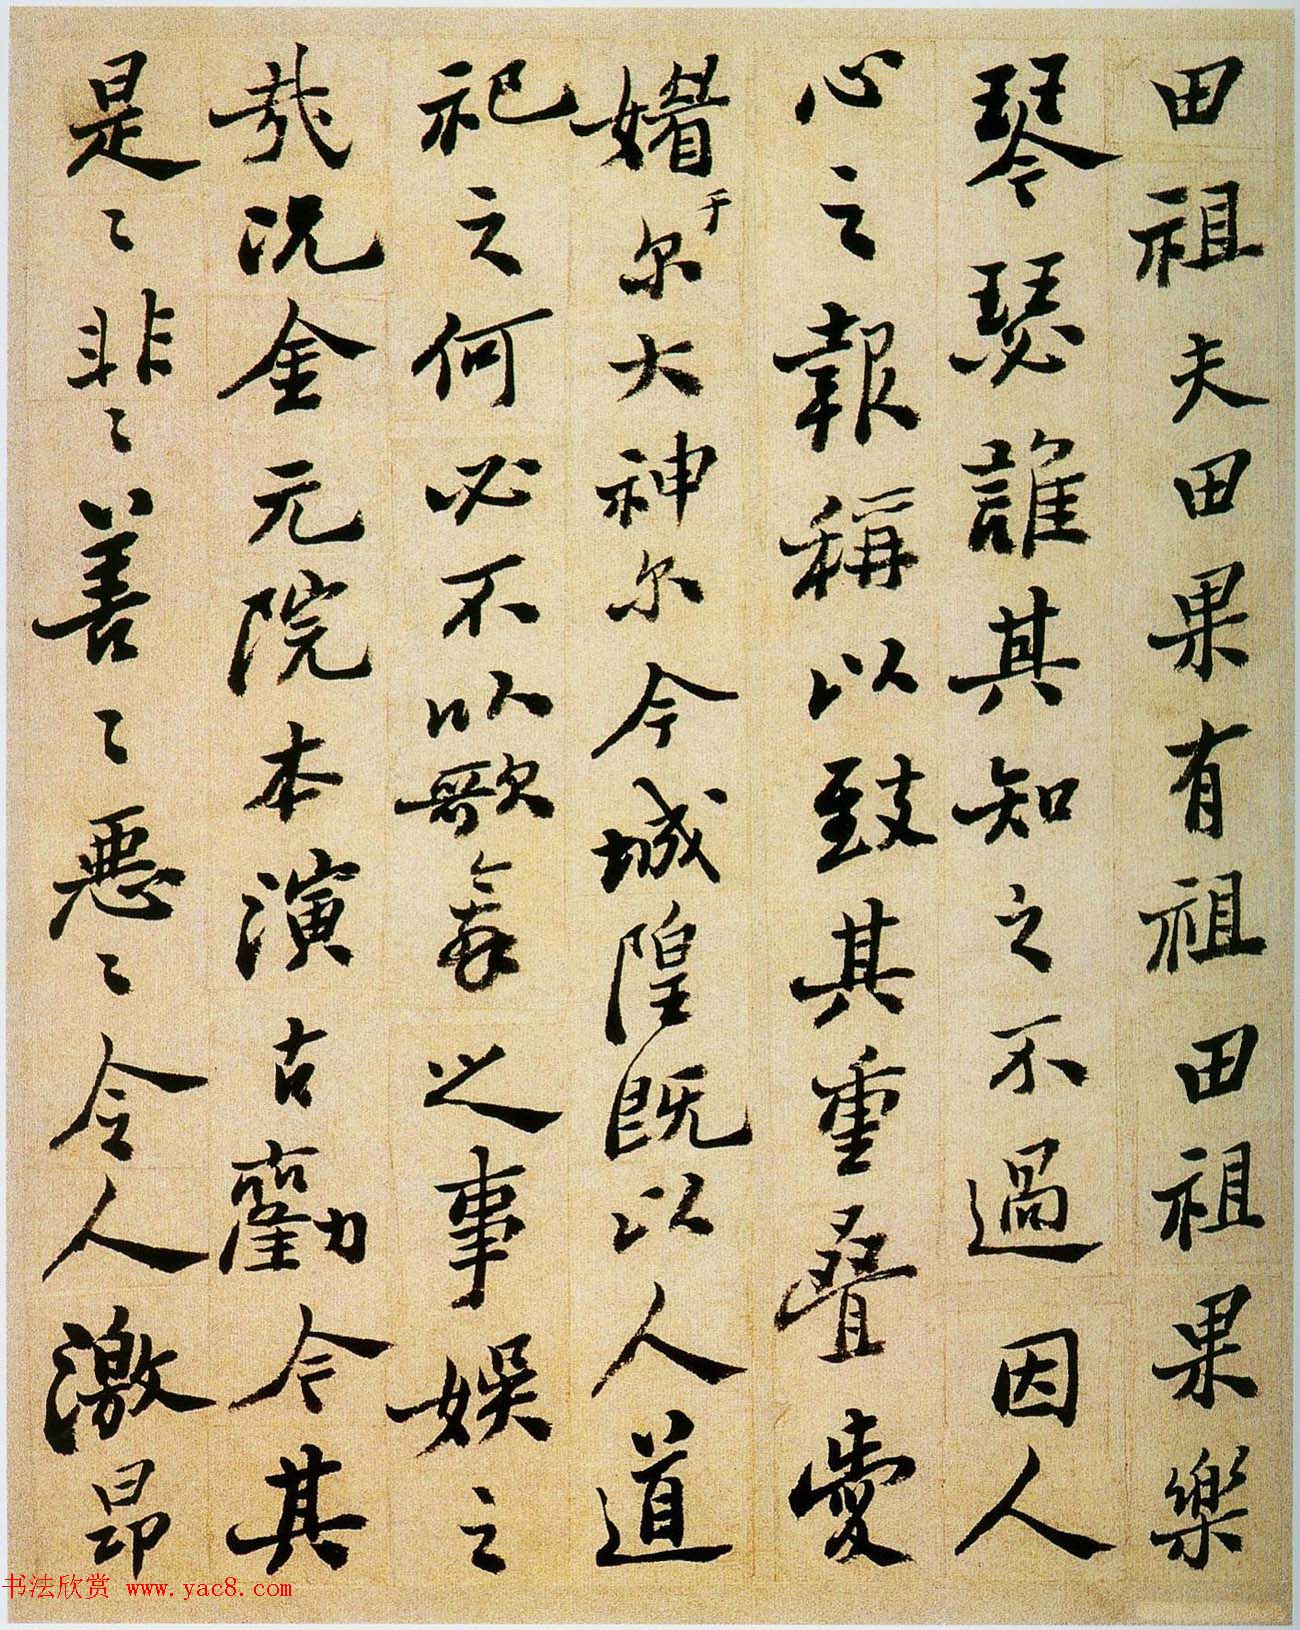 田祖夫田果有祖田祖果樂
琴瑟誰其知之不過因人
心之報稱以致其重疊愛
媚于尔大神尔今城隍既以人道
祀之何必不以歌舞之事娛之
哉况金元院本演古勸今其
是〻非〻善〻惡〻令人激昂
书法欣赏 www.yac8.com